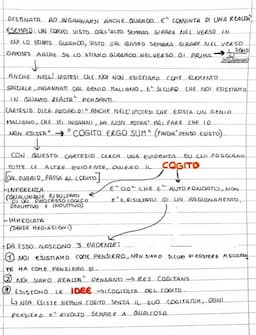 DESTINATA AD INGANNARSI ANCHE QUANDO E' CONVINTA DI UNA REALTA'
ESEMPIO: UN CORPO VISTO DALL'ALTO SEMBRA GIRARE NEL VERSO IN
CUI LO STIAMO GUARDANDO, VISTO DAL BASSO SEMBRA GIRARE NEL VERSO
OPPOSTO ANCHE SE LO STIAMO GUARDANDO NEL VERSO DI PRIMA → I SENSI
CI INGANNANO
ANCHE NELL'IPOTESI CHE NOI NON ESISTIAMO COME ELEMENTO
SPAZIALE, INGANNATI DAL GENIO MALIGNO, E' SICURO CHE NOI ESISTIAMO
IN QUANTO REALTA' PENSANTI.
CARTESIO DICE ANCORA: "ANCHE NELL'IPOTESI CHE ESISTA UN GENIO
MALIGNO, CHE MI INGANNI, MA NON POTRA' MAI FARE CHE IO
NON ESISTA" → "COGITO ERGO SUM" (PENSO ESISTO)
CON QUESTO CARTESIO CERCA UNA EVIDENZA SU CUI POGGIANO
TUTTE LE ALTRE EVIDENZE, OVVERO IL COGITO
(DAL DUBBIO, PASSA AL COGITO)
-INFERENZA E' CIO' CHE E' AUTOFONDATO, NON
(QUALUNQUE RISULTATO E' IL RISULTATO DI UN RAGIONAMENTO,
DI UN PROCESSO LOGICO
DEDUTTIVO E INDUTTIVO)
-IMMEDIATA
(SENZA MEDIAZIONI)
DA ESSO NASCONO 3 EVIDENZE:
1 NOI ESISTIAMO COME PENSIERO, NON SIAMO SICURI DI ESISTERE
MA COME PENSIERO SI
2 NOI SIAMO REALTA' PENSANTI → RES COGITANS
3 ESISTONO LE IDEE → COGITATA DEL COGITO.
NON ESISTE NESSUN COGITO SENZA IL SUO COGITATUM, OGNI
PENSIERO E' RIVOLTO SEMPRE A QUALCOSA